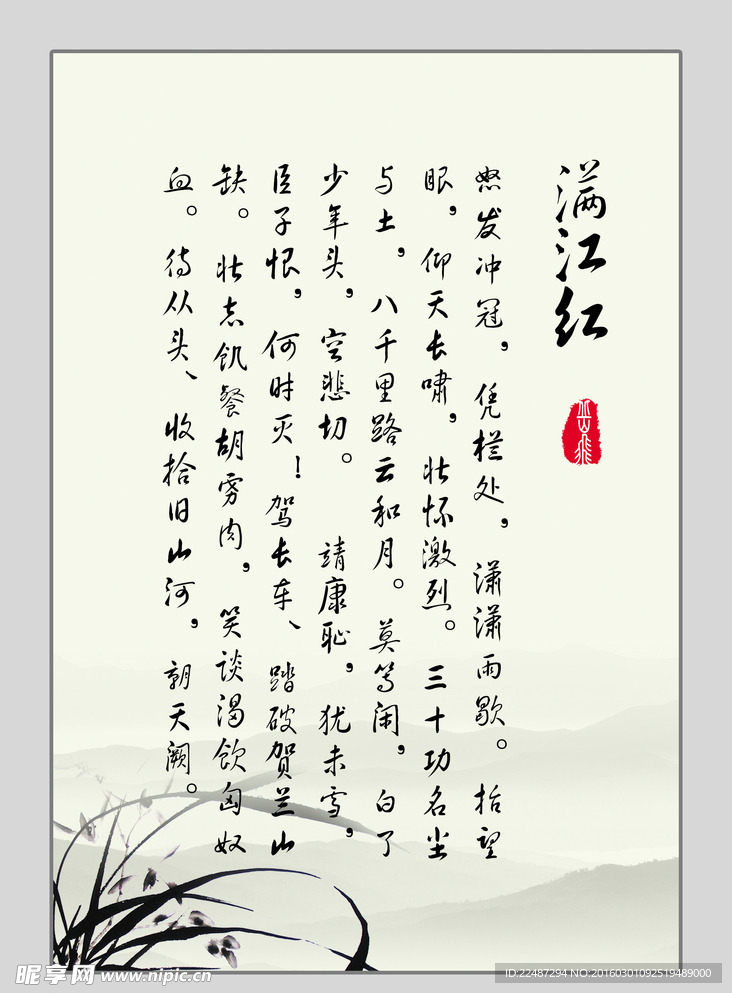 满江红
岳飞
怒发冲冠，凭栏处，潇潇雨歇。抬望
眼，仰天长啸，壮怀激烈。三十功名尘
与土，八千里路云和月。莫等闲，白了
少年头，空悲切。 靖康耻，犹未雪，
臣子恨，何时灭！驾长车、踏破贺兰山
缺。壮志饥餐胡虏肉，笑谈渴饮匈奴
血。待从头、收拾旧山河，朝天阙。
昵享网 www.nipic.cn
ID:22487294 NO:20160301092519489000